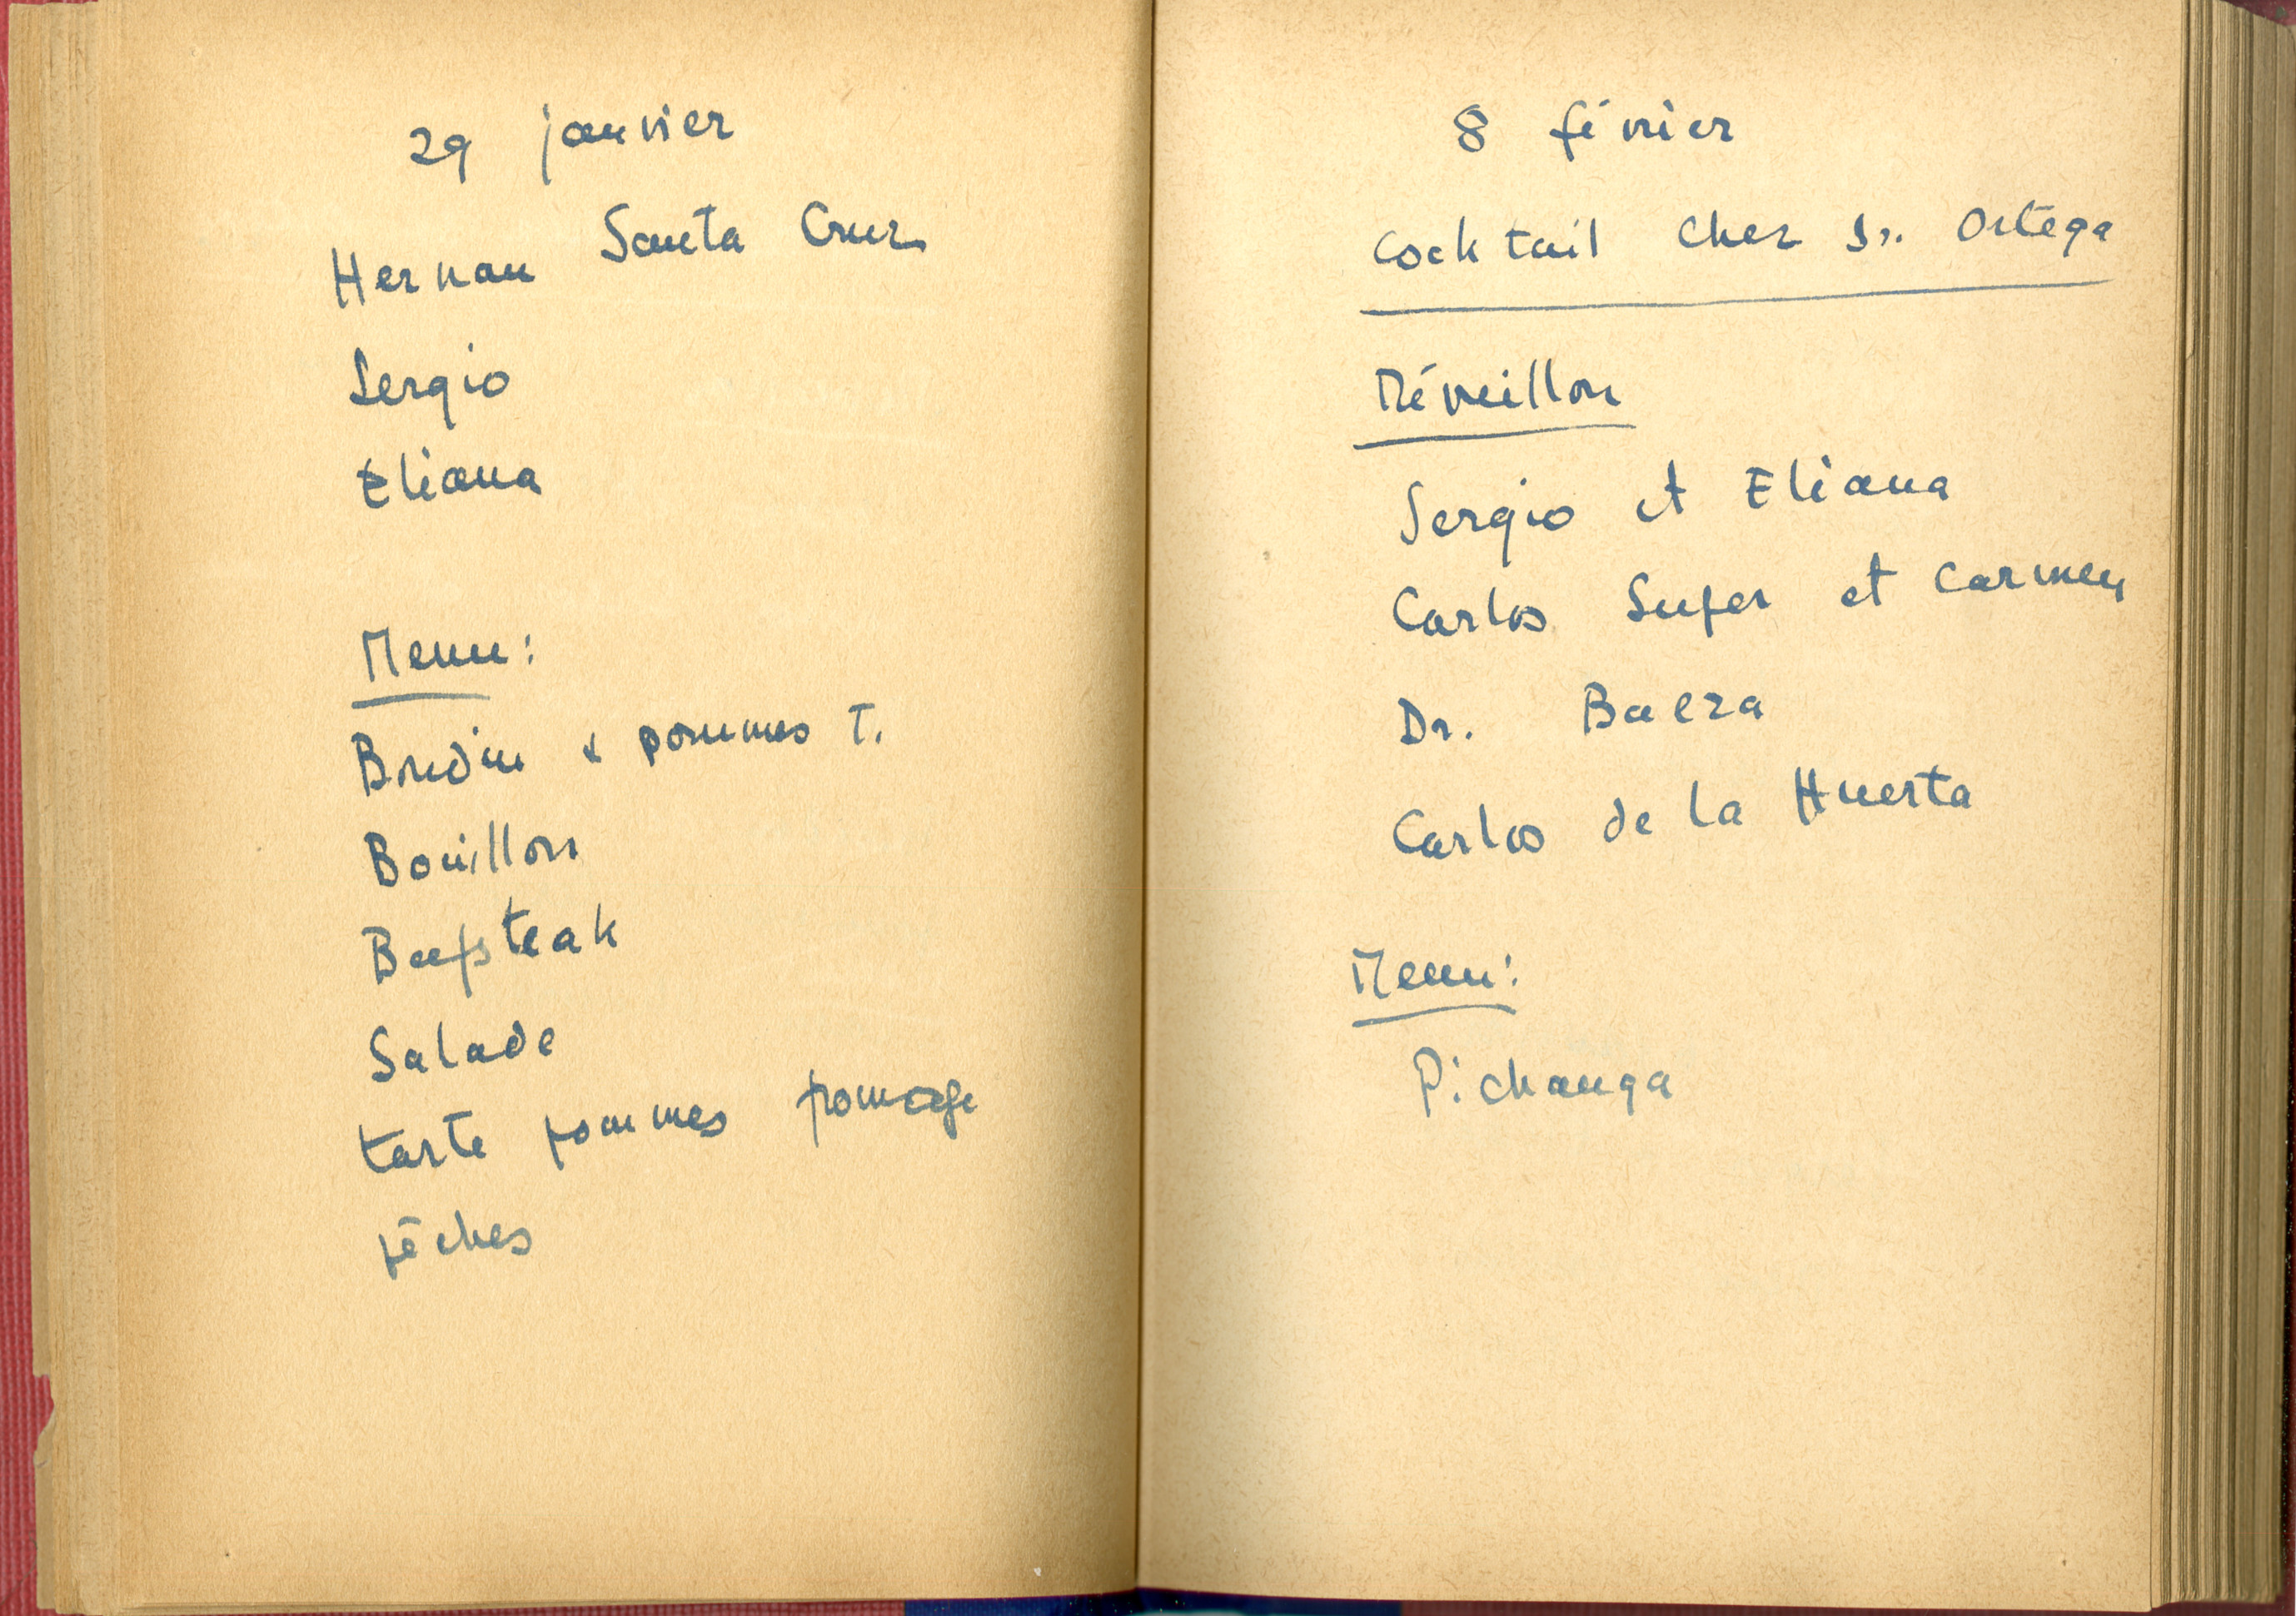 29 janvier
Hernan Santa Cruz
Sergio
Eliana
Menu:
Boudin & pommes T.
Bouillon
Beefsteak
Salade
tarte pommes fromage
pêches
8 février
Cocktail chez Sr. Ortega
Réveillon
Sergio et Eliana
Carlos et Carmen
Dr. Baeza
Carlos de la Huerta
Menu:
Pichanga